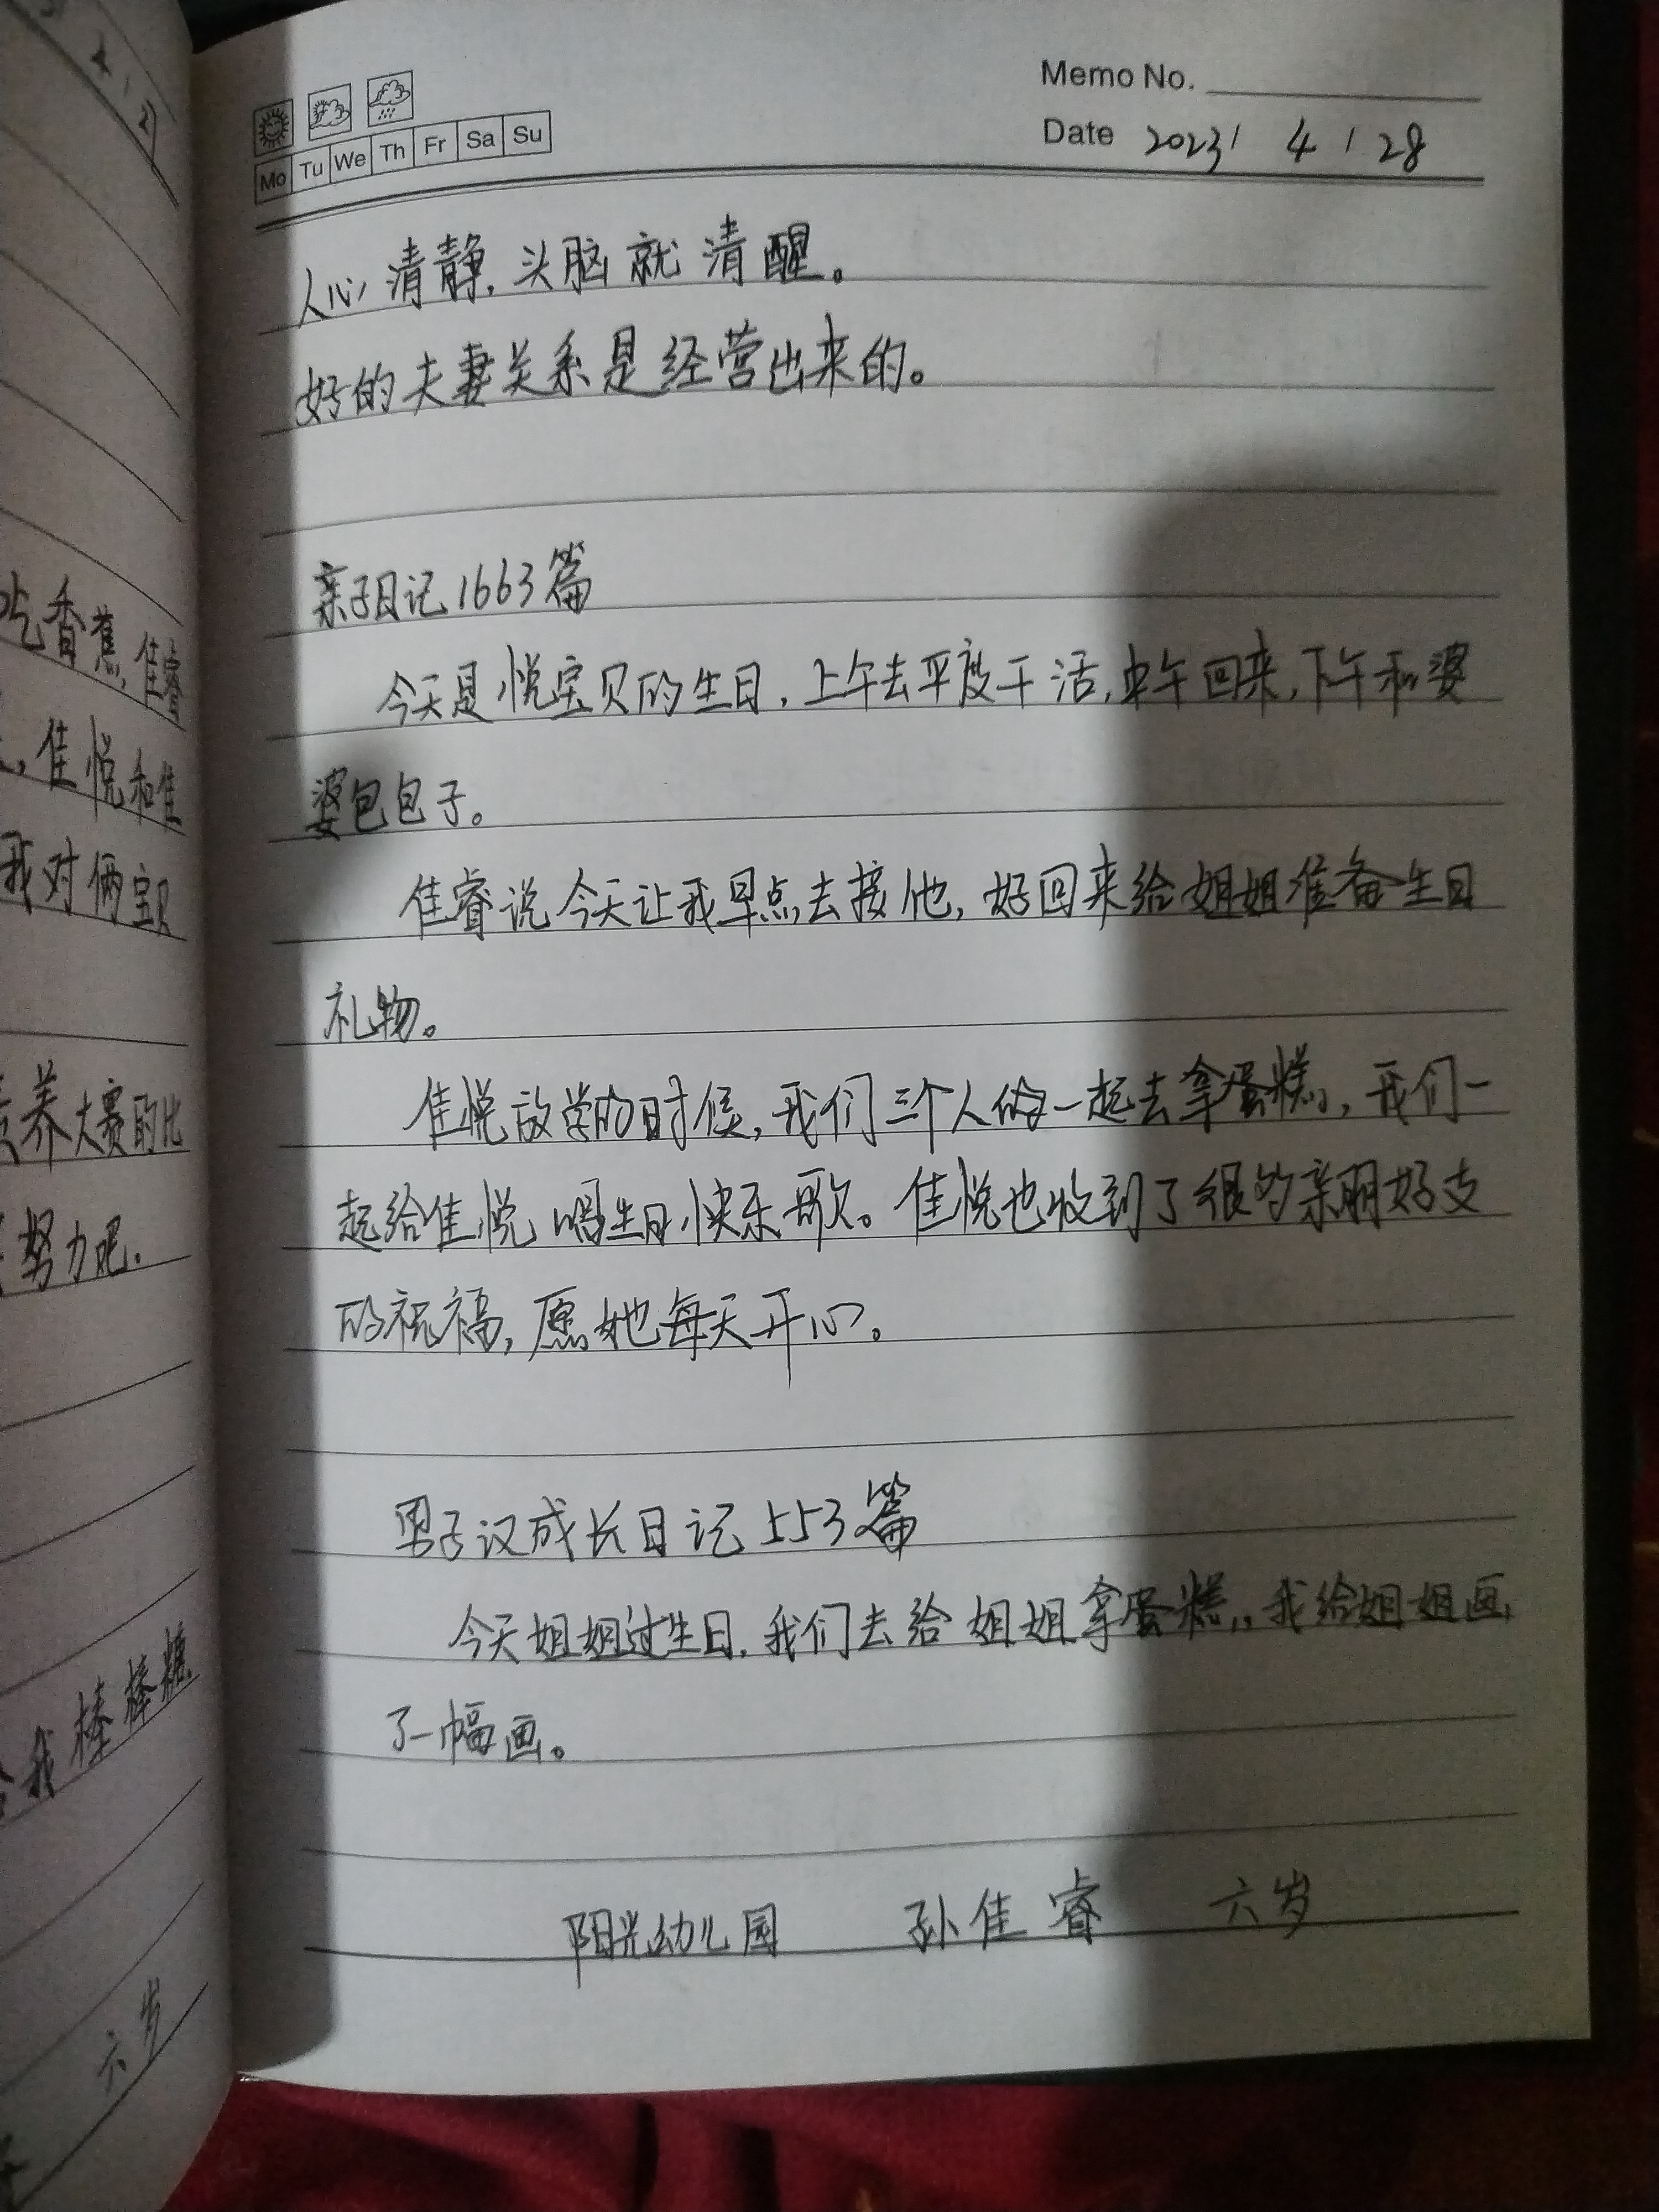 Memo No.
Mo Tu We Th Fr Sa Su
Date 2023 / 4 / 28
人心清静,头脑就清醒。
好的夫妻关系是经营出来的。
亲子日记1663篇
今天是悦宝贝的生日,上午去平度干活,中午回来,下午和婆
婆包包子。
佳睿说今天让我早点去接他,好回来给姐姐准备生日
礼物。
佳悦放学的时候,我们三个人一起去拿蛋糕,我们一
起给佳悦唱生日快乐歌。佳悦也收到了很多亲朋好友
的祝福,愿她每天开心。
男子汉成长日记553篇
今天姐姐过生日,我们去给姐姐拿蛋糕,我给姐姐画
了一幅画。
阳光幼儿园 孙佳睿 六岁
吃香蕉,佳睿
,佳悦和佳
我对俩宝贝
养大赛的比
努力吧.
我棒棒糖
六岁